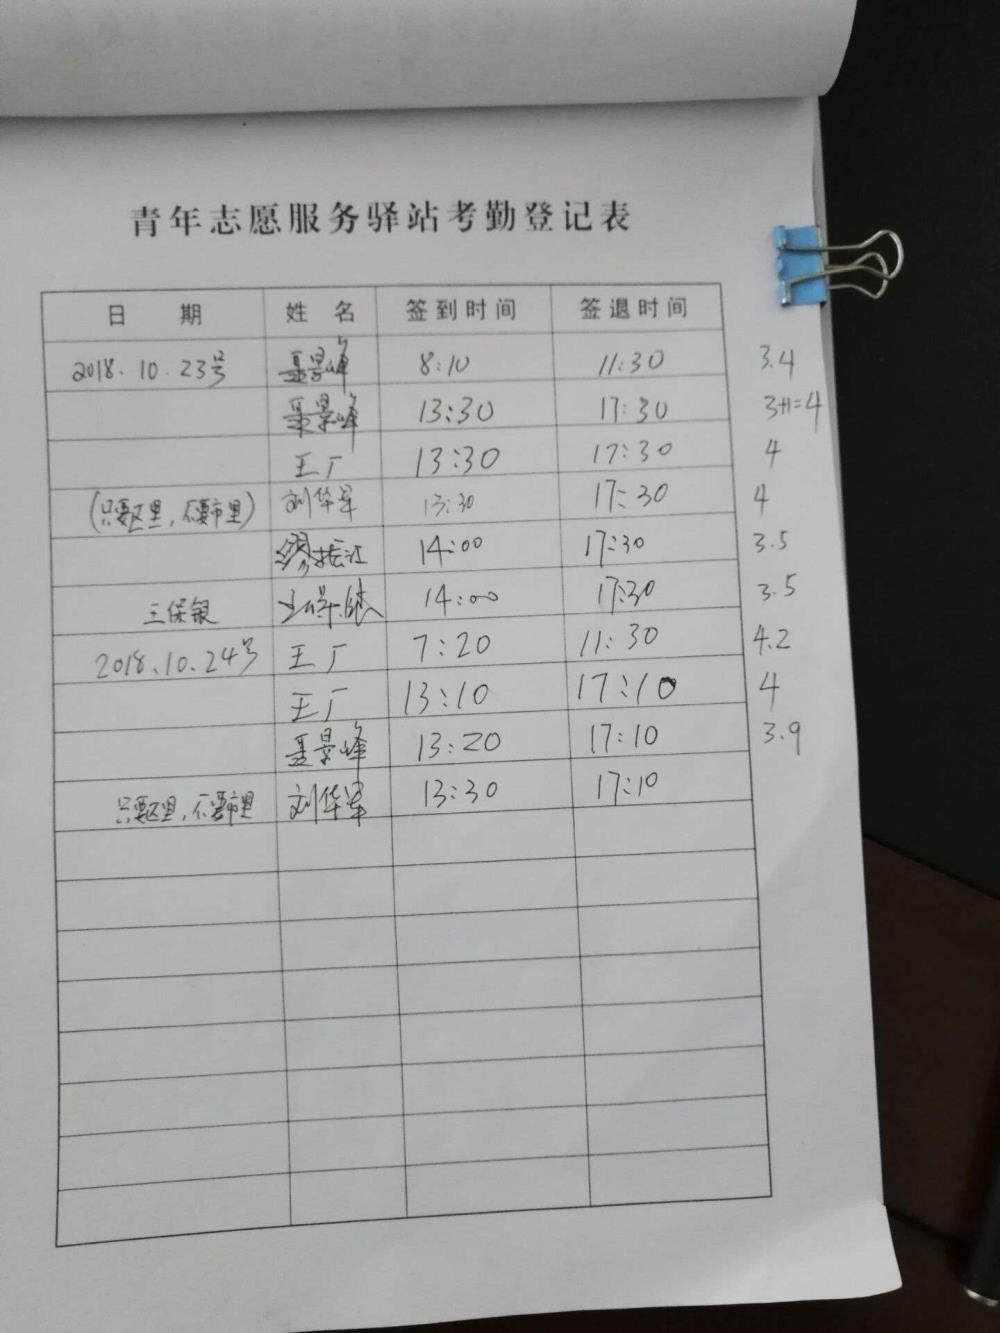 青年志愿服务驿站考勤登记表
日 期 姓 名 签到时间 签退时间
2018.10.23号 聂景峰 8:10 11:30 3.4
聂景峰 13:30 17:30 3+1=4
王厂 13:30 17:30 4
(只要区里,不要市里) 刘华军 13:30 17:30 4
缪振江 14:00 17:30 3.5
王保银 王保银 14:00 17:30 3.5
2018.10.24号 王厂 7:20 11:30 4.2
王厂 13:10 17:10 4
聂景峰 13:20 17:10 3.9
只要区里,不要市里 刘华军 13:30 17:10